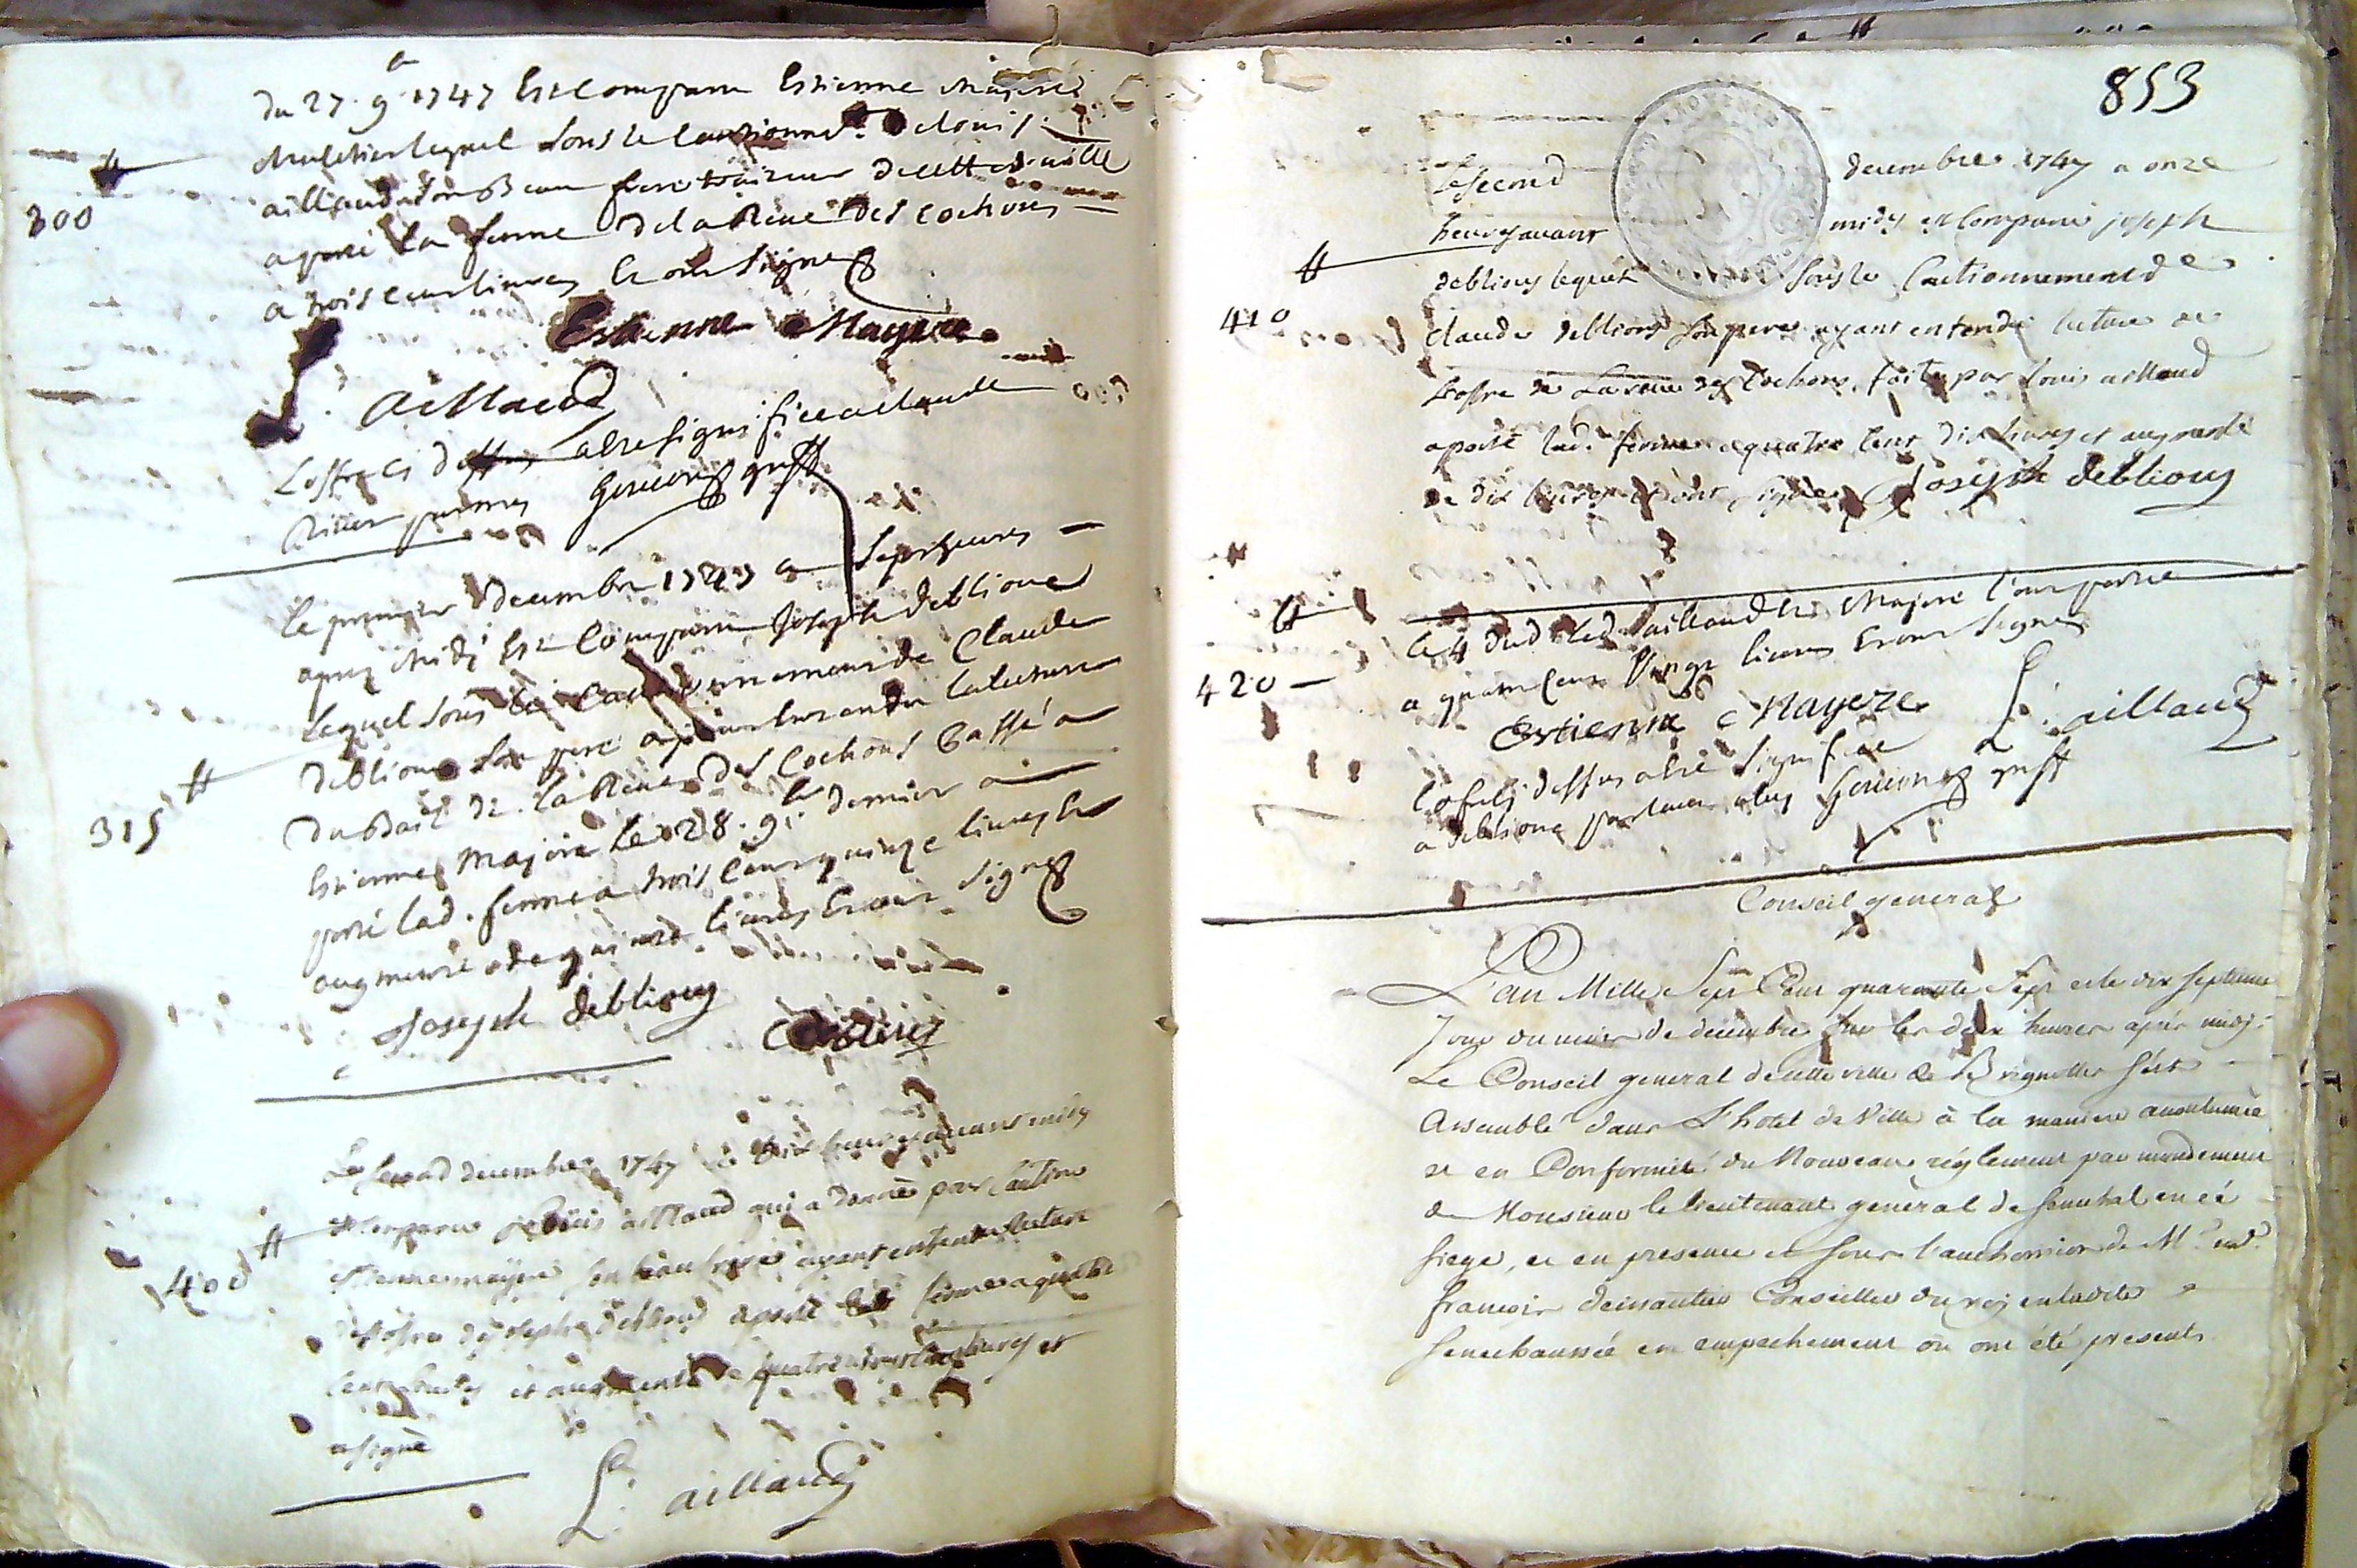 du 27. 9.e 1747 Est Comparu Estienne Majere
lequel sous le cautionnem.t de louis
ailliaud son Beau frere de cette ville
a porté la ferme de la Reue des cochons
300
a trois cent livres Et ont signes
Estienne Mayere
L. aillaud
L'offre cy dessus a este signifiee a claude
Gineons greff
Le premier decembre 1747 a sept heures
apres Midi Est Comparu Joseph deblioux
lequel sous le cautionnement de Claude
deblioux son pere ayant entendu la lecture
du Bail de la Reue des Cochons Passé a
315
Estienne majere le 28. 9.e dernier a
porté lad. ferme a trois Cent quinze livres Et
augmenté de quinze livres Et ont signes
Joseph deblioux
deblioux
Le second decembre 1747 a dix heures avant midy
est comparu Louis aillaud qui a donné pour caution
400
Estienne mayere son beau frere ayant entendu lecture
de l'ofre de Joseph deblioux a porté lad. ferme a quatre
cent livres et augmenté de quatre vingt cinq livres et
a signé
L. aillaud
853
Le second decembre 1747 a onze
heures avant midy est Comparu joseph
deblioux lequel sous le Cautionnement de
410
claude deblioux son pere ayant entendu lecture de
l'ofre de La reue des Cochons, faite par louis aillaud
a porté lad. ferme a quatre cent dix livres et augmenté
de dix livres et ont signes Joseph deblioux
le 4 dud. led. aillaud Et Majere l'ont portee
420
a quatre Cent Vingt livres Et ont signes
Estienne Mayere L. aillaud
l'ofre cy dessus a ete signifiée
a deblioux parlant a luy Gineons greff
Conseil general
L'an Mille Sept Cent quarante Sept et le dix septieme
Jour du mois de decembre sur les deux heures après midy
Le Conseil general de cette ville de Brignolle s'est
Assemblé dans L'hotel de Ville à la maniere accoutumée
et en Conformité du Nouveau réglement par mandement
de Monsieur le lieutenant general de senechal en ce
siege, et en presence et sous l'authorisation de M.e
francois Conseiller du roy en ladite
senechaussée en empechement où ont été presents